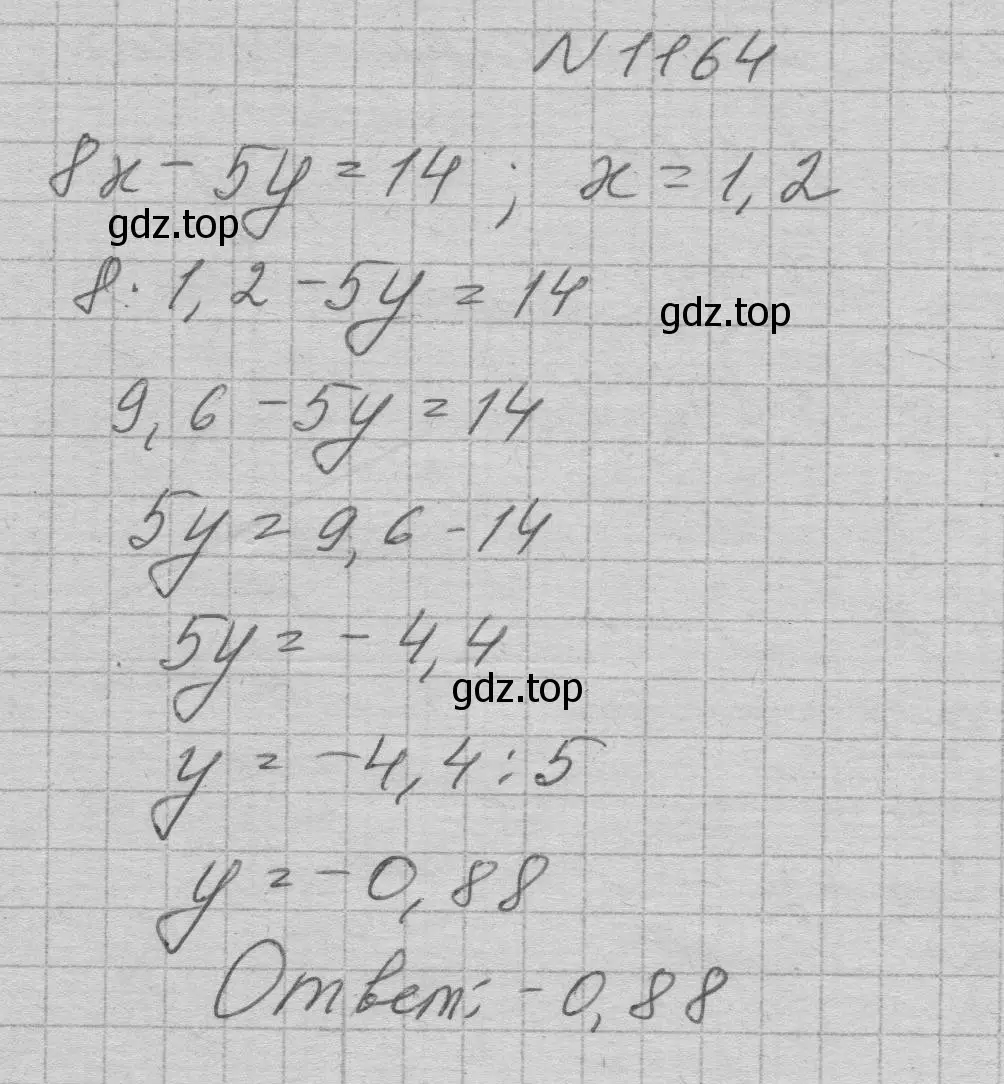 N 1164
8x - 5y = 14 ; x = 1,2
gdz.top
8 · 1,2 - 5y = 14
gdz.top
9,6 - 5y = 14
5y = 9,6 - 14
5y = - 4,4
gdz.top
y = -4,4 : 5
y = - 0,88
Ответ: - 0,88